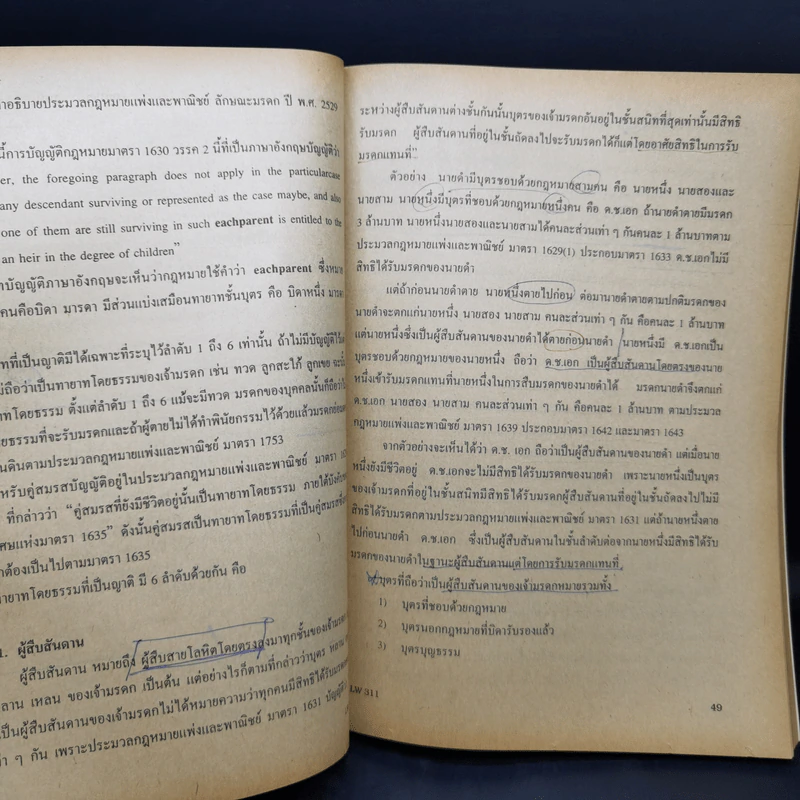 คำอธิบายประมวลกฎหมายแพ่งและพาณิชย์ ลักษณะมรดก ปี พ.ศ. 2529
นี้การบัญญัติกฎหมายมาตรา 1630 วรรค 2 นี้ที่เป็นภาษาอังกฤษบัญญัติว่า
er, the foregoing paragraph does not apply in the particularcase
any descendant surviving or represented as the case maybe, and also
one of them are still surviving in such eachparent is entitled to the
an heir in the degree of children”
บัญญัติภาษาอังกฤษจะเห็นว่ากฎหมายใช้คำว่า eachparent ซึ่งหมาย
คนคือบิดา มารดา มีส่วนแบ่งเสมือนทายาทชั้นบุตร คือ บิดาหนึ่ง มารดา
ทที่เป็นญาติมีได้เฉพาะที่ระบุไว้ลำดับ 1 ถึง 6 เท่านั้น ถ้าไม่มีบัญญัติไว้
ม่ถือว่าเป็นทายาทโดยธรรมของเจ้ามรดก เช่น ทวด ลูกสะใภ้ ลูกเขย
ทโดยธรรม ตั้งแต่ลำดับ 1 ถึง 6 แม้จะมีทวด มรดกของบุคคลนั้นก็ถือว่า
ยธรรมที่จะรับมรดกและถ้าผู้ตายไม่ได้ทำพินัยกรรมไว้ด้วยแล้วมรดก
นดินตามประมวลกฎหมายแพ่งและพาณิชย์ มาตรา 1753
หรับคู่สมรสบัญญัติอยู่ในประมวลกฎหมายแพ่งและพาณิชย์ มาตรา
ที่กล่าวว่า “คู่สมรสที่ยังมีชีวิตอยู่นั้นเป็นทายาทโดยธรรม ภายใต้บังคับ
ศษแห่งมาตรา 1635” ดังนั้นคู่สมรสเป็นทายาทโดยธรรมที่เป็นคู่สมรส
กต้องเป็นไปตามมาตรา 1635
ายาทโดยธรรมที่เป็นญาติ มี 6 ลำดับด้วยกัน คือ
1. ผู้สืบสันดาน
ผู้สืบสันดาน หมายถึง ผู้สืบสายโลหิตโดยตรงลงมาทุกชั้นของเจ้ามรดก
ลาน เหลน ของเจ้ามรดก เป็นต้น แต่อย่างไรก็ตามที่กล่าวว่าบุตร หลาน
เป็นผู้สืบสันดานของเจ้ามรดกไม่ได้หมายความว่าทุกคนมีสิทธิได้รับมรดก
ๆ กัน เพราะประมวลกฎหมายแพ่งและพาณิชย์ มาตรา 1631 บัญญัติ
ระหว่างผู้สืบสันดานต่างชั้นกันนั้นบุตรของเจ้ามรดกอันอยู่ในชั้นสนิทที่สุดเท่านั้นมีสิทธิ
รับมรดก ผู้สืบสันดานที่อยู่ในชั้นถัดลงไปจะรับมรดกได้ก็แต่โดยอาศัยสิทธิในการรับ
มรดกแทนที่”
ตัวอย่าง นายดำมีบุตรชอบด้วยกฎหมายสามคน คือ นายหนึ่ง นายสองและ
นายสาม นายหนึ่งมีบุตรที่ชอบด้วยกฎหมายหนึ่งคน คือ ด.ช.เอก ถ้านายดำตายมีมรดก
3 ล้านบาท นายหนึ่งนายสองและนายสามได้คนละส่วนเท่า ๆ กันคนละ 1 ล้านบาทตาม
ประมวลกฎหมายแพ่งและพาณิชย์ มาตรา 1629(1) ประกอบมาตรา 1633 ด.ช.เอกไม่มี
สิทธิได้รับมรดกของนายดำ
แต่ถ้าก่อนนายดำตาย นายหนึ่งตายไปก่อน ต่อมานายดำตายตามปกติมรดกของ
นายดำจะตกแก่นายหนึ่ง นายสอง นายสาม คนละส่วนเท่า ๆ กัน คือคนละ 1 ล้านบาท
แต่นายหนึ่งซึ่งเป็นผู้สืบสันดานของนายดำได้ตายก่อนนายดำ นายหนึ่งมี ด.ช.เอกเป็น
บุตรชอบด้วยกฎหมายของนายหนึ่ง ถือว่า ด.ช.เอก เป็นผู้สืบสันดานโดยตรงของนาย
หนึ่งเข้ารับมรดกแทนที่นายหนึ่งในการสืบมรดกของนายดำได้ มรดกนายดำจึงตกแก่
ด.ช.เอก นายสอง นายสาม คนละส่วนเท่า ๆ กัน คือคนละ 1 ล้านบาท ตามประมวล
กฎหมายแพ่งและพาณิชย์ มาตรา 1639 ประกอบมาตรา 1642 และมาตรา 1643
จากตัวอย่างจะเห็นได้ว่า ด.ช. เอก ถือว่าเป็นผู้สืบสันดานของนายดำ แต่เมื่อนาย
หนึ่งยังมีชีวิตอยู่ ด.ช.เอกจะไม่มีสิทธิได้รับมรดกของนายดำ เพราะนายหนึ่งเป็นบุตร
ของเจ้ามรดกที่อยู่ในชั้นสนิทมีสิทธิได้รับมรดกผู้สืบสันดานที่อยู่ในชั้นถัดลงไปไม่มี
สิทธิได้รับมรดกตามประมวลกฎหมายแพ่งและพาณิชย์ มาตรา 1631 แต่ถ้านายหนึ่งตาย
ไปก่อนนายดำ ด.ช.เอก ซึ่งเป็นผู้สืบสันดานในชั้นลำดับต่อจากนายหนึ่งมีสิทธิได้รับ
มรดกของนายดำในฐานะผู้สืบสันดานแต่โดยการรับมรดกแทนที่
บุตรที่ถือว่าเป็นผู้สืบสันดานของเจ้ามรดกหมายรวมทั้ง
1) บุตรที่ชอบด้วยกฎหมาย
2) บุตรนอกกฎหมายที่บิดารับรองแล้ว
3) บุตรบุญธรรม
LW 311
49